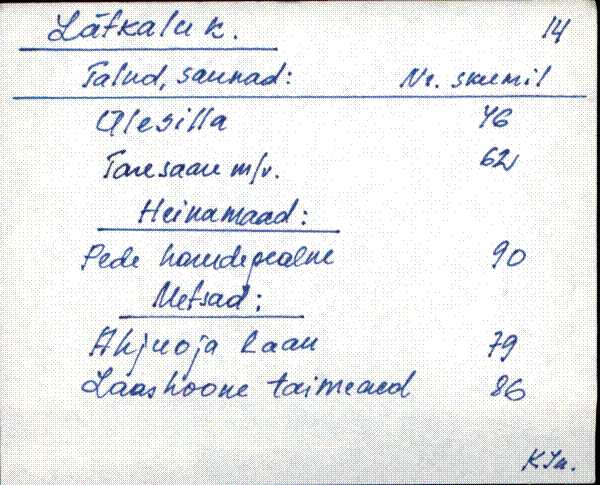 Lätkalu k. 14
Talud, saunad: Nr. skeemil
Ülesilla 46
Taresaare m/v. 62
Heinamaad:
Pede haudepealne 90
Metsad:
Ahjuoja laan 79
Laashoone taimeaed 86